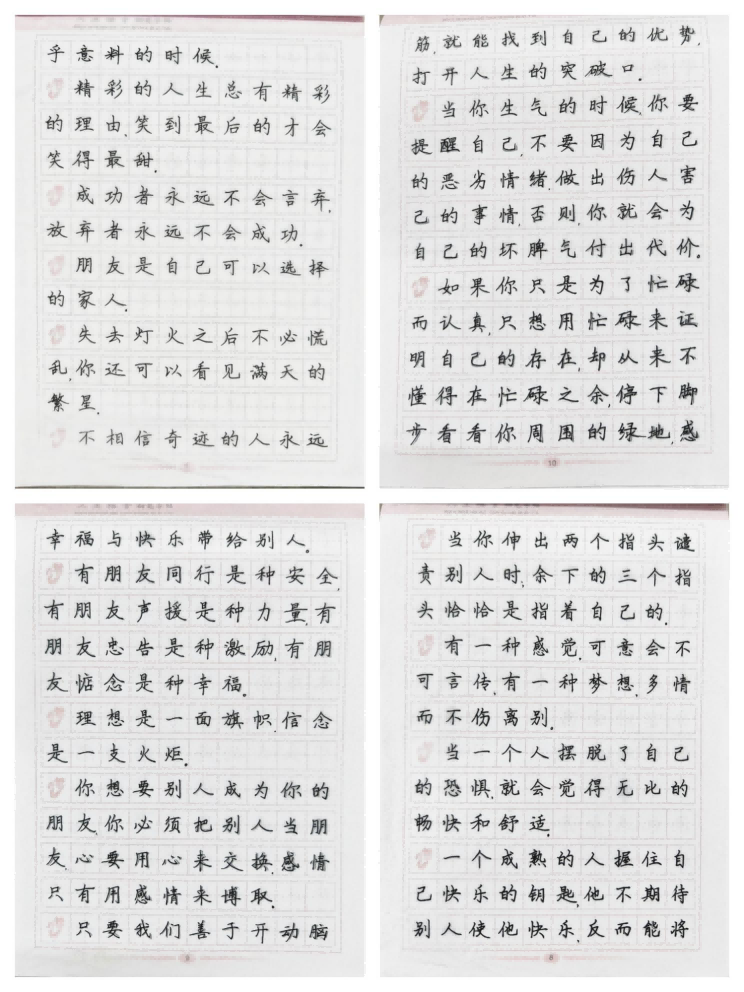 乎意料的时候.
精彩的人生总有精彩
的理由.笑到最后的才会
笑得最甜.
成功者永远不会言弃,
放弃者永远不会成功.
朋友是自己可以选择
的家人.
失去灯火之后不必慌
乱,你还可以看见满天的
繁星.
不相信奇迹的人永远
筋,就能找到自己的优势,
打开人生的突破口.
当你生气的时候,你要
提醒自己,不要因为自己
的恶劣情绪,做出伤人害
己的事情,否则,你就会为
自己的坏脾气付出代价.
如果你只是为了忙碌
而认真,只想用忙碌来证
明自己的存在,却从来不
懂得在忙碌之余,停下脚
步看看你周围的绿地,感
10
幸福与快乐带给别人.
有朋友同行是种安全,
有朋友声援是种力量,有
朋友忠告是种激励,有朋
友惦念是种幸福.
理想是一面旗帜,信念
是一支火炬.
你想要别人成为你的
朋友,你必须把别人当朋
友.心要用心来交换,感情
只有用感情来博取.
只要我们善于开动脑
当你伸出两个指头谴
责别人时,余下的三个指
头恰恰是指着自己的.
有一种感觉,可意会不
可言传,有一种梦想,多情
而不伤离别.
当一个人摆脱了自己
的恐惧,就会觉得无比的
畅快和舒适.
一个成熟的人握住自
己快乐的钥匙,他不期待
别人使他快乐,反而能将
8